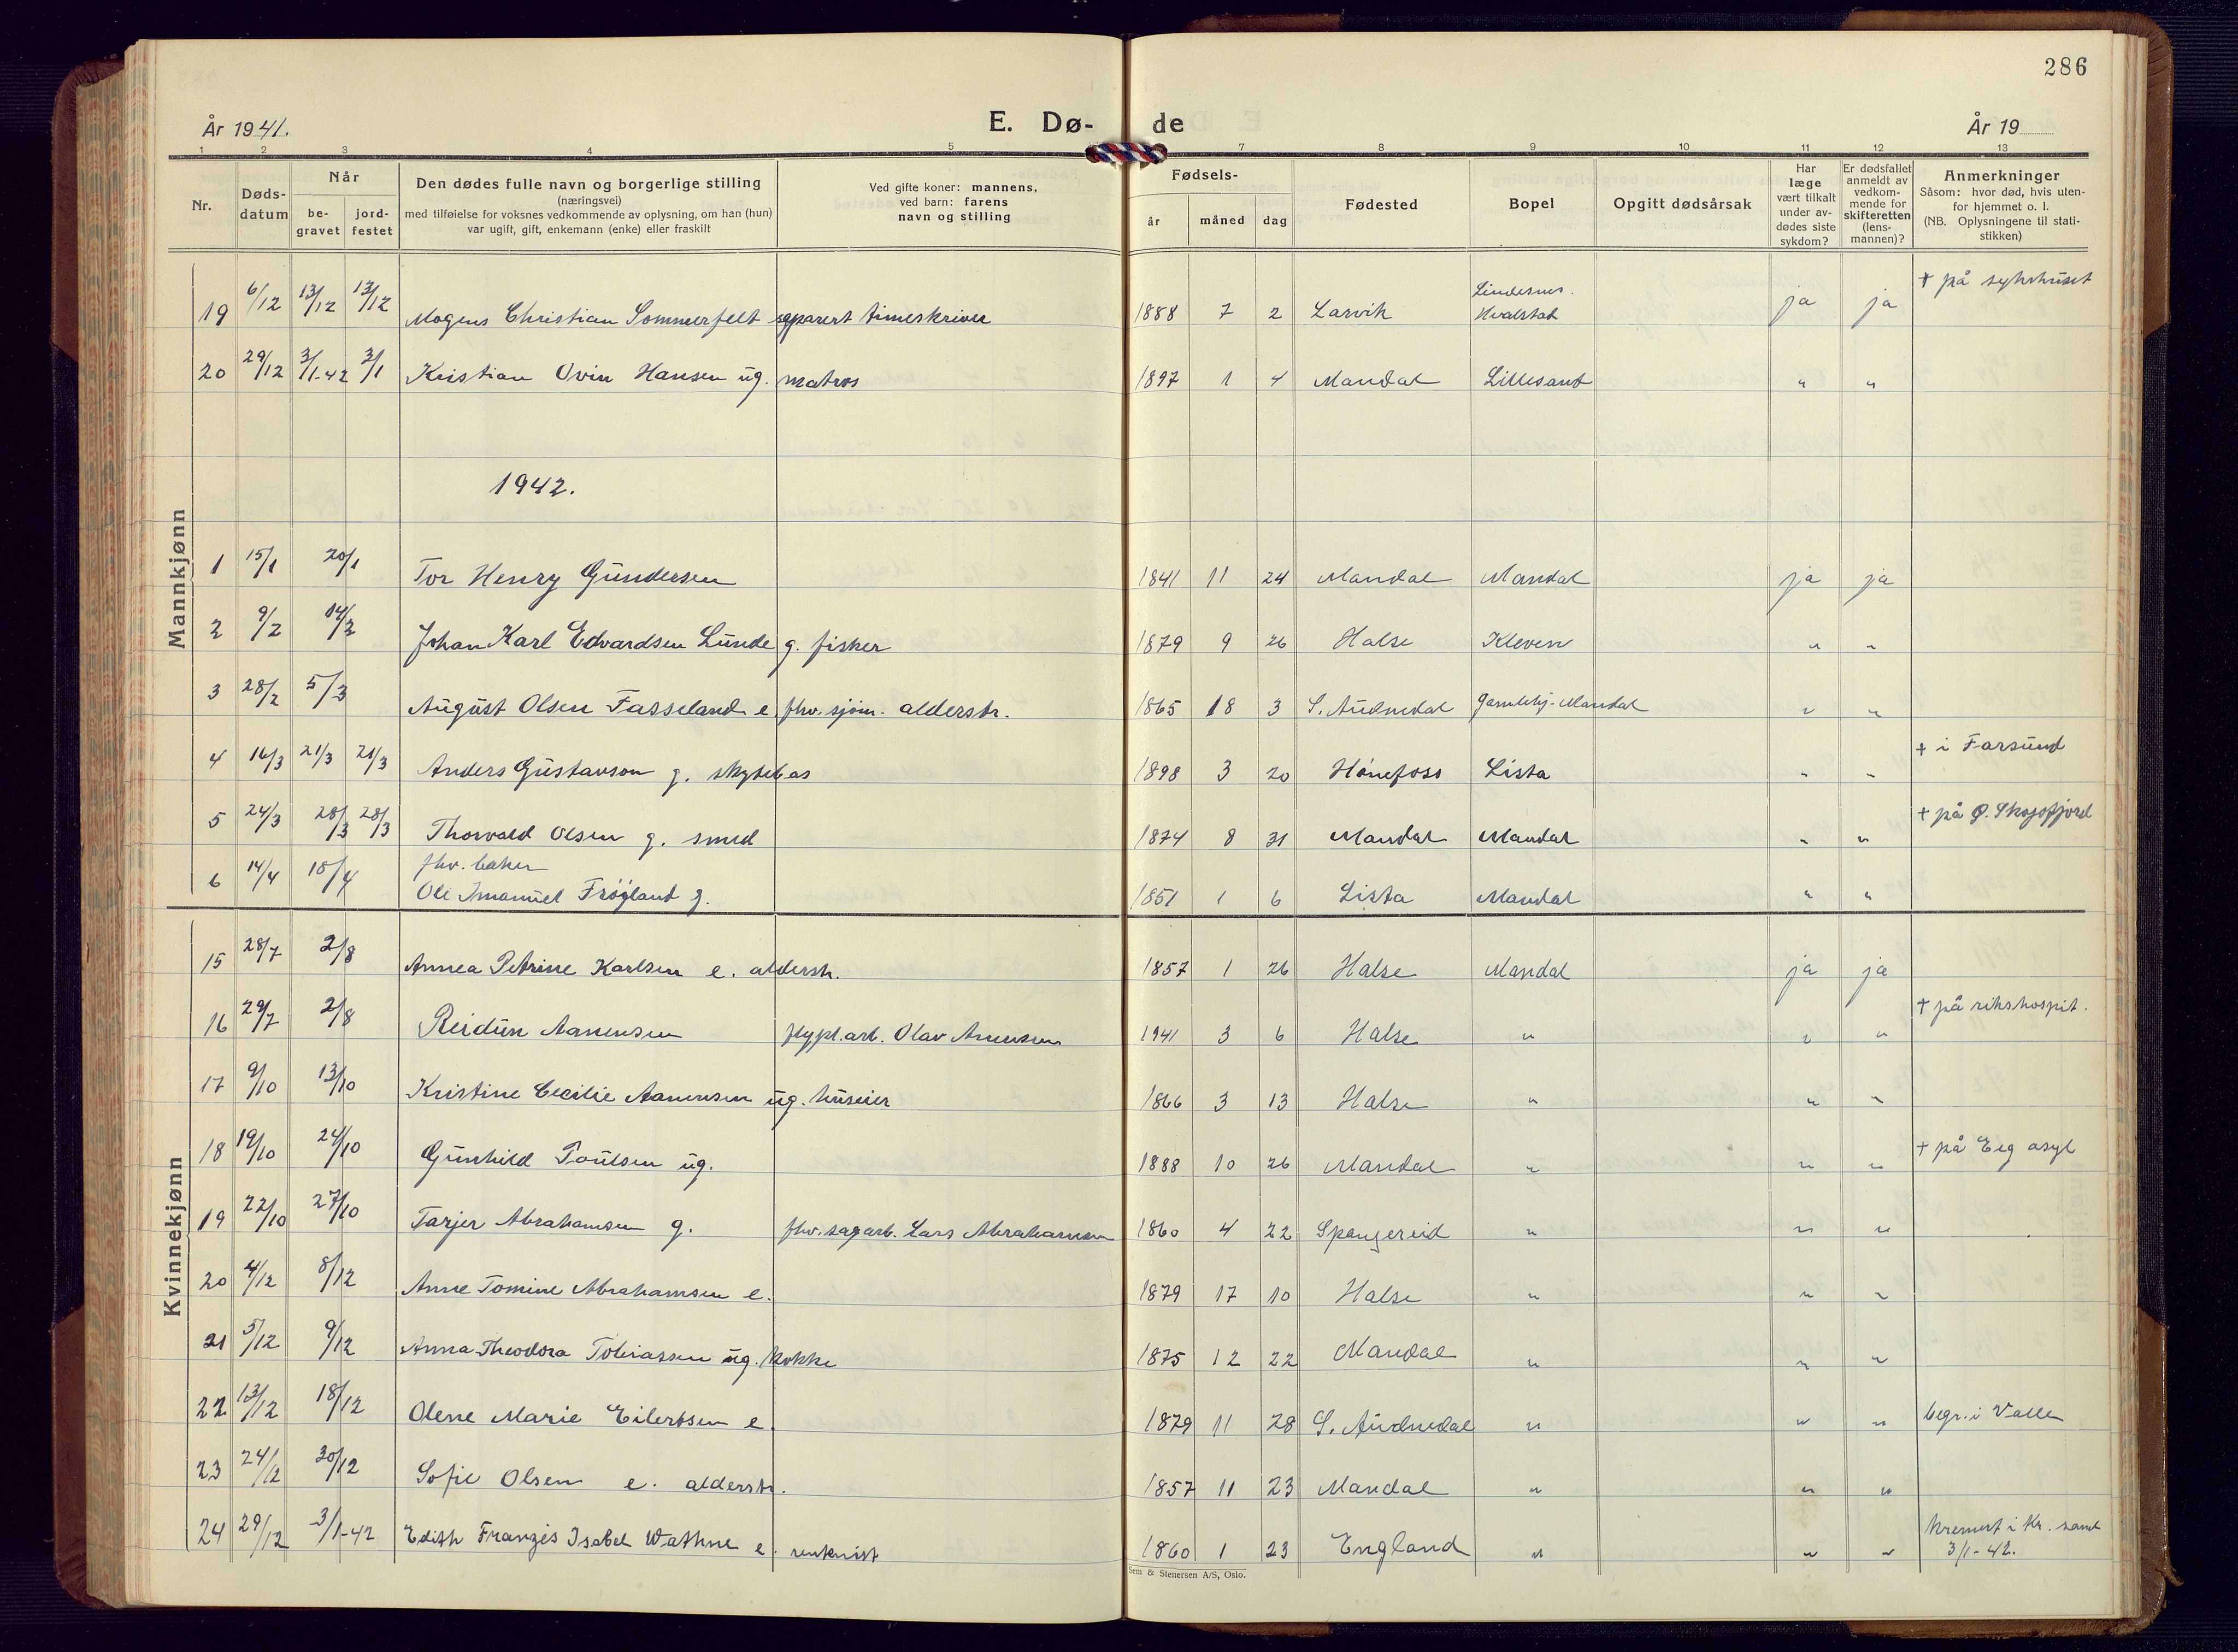 286
År 1941.
E. Dø-
de
År 19
1 2 3 4 5 7 8 9 10 11 12 13
Nr.
Døds-
datum
Når
be-
gravet
jord-
festet
Den dødes fulle navn og borgerlige stilling
(næringsvei)
med tilføielse for voksnes vedkommende av oplysning, om han (hun)
var ugift, gift, enkemann (enke) eller fraskilt
Ved gifte koner: mannens,
ved barn: farens
navn og stilling
Fødsels-
år måned dag
Fødested
Bopel
Opgitt dødsårsak
Har
læge
vært tilkalt
under av-
dødes siste
sykdom?
Er dødsfallet
anmeldt av
vedkom-
mende for
skifteretten
(lens-
mannen)?
Anmerkninger
Såsom: hvor død, hvis uten-
for hjemmet o. l.
(NB. Oplysningene til stati-
stikken)
Mannkjønn
19 6/12 13/12 13/12 Mogens Christian Sommerfelt separert timeskriver 1888 7 2 Larvik Lindesnes. Hvalstad ja ja + på sykehuset
20 29/12 3/1-42 3/1 Kristian Ovin Hansen ug. matros 1897 1 4 Mandal Lillesand " "
1942.
1 15/1 20/1 Tor Henry Gundersen 1841 11 24 Mandal Mandal ja ja
2 9/2 14/2 Johan Karl Edvardsen Lunde g. fisker 1879 9 26 Halse Kleven " "
3 28/2 5/3 August Olsen Fasseland e. fhv. sjøm. alderstr. 1865 18 3 S. Audnedal Gamleby-Mandal " "
4 16/3 21/3 21/3 Anders Gustavson g. skytebas 1898 3 20 Hønefoss Lista " " + i Farsund
5 24/3 28/3 28/3 Thorvald Olsen g. smed 1874 8 31 Mandal Mandal " " + på Ø. Skogsfjord
6 14/4 18/4 fhv. baker
Ole Imanuel Frøyland g. 1851 1 6 Lista Mandal " "
Kvinnekjønn
15 28/7 2/8 Annea Petrine Karlsen e. alderstr. 1857 1 26 Halse Mandal ja ja
16 29/7 2/8 Reidun Aanensen flypl.arb. Olav Anensen 1941 3 6 Halse " " " + på rikshospit.
17 9/10 13/10 Kristine Cecilie Aanensen ug. huseier 1866 3 13 Halse " " "
18 19/10 24/10 Gunhild Poulsen ug. 1888 10 26 Mandal " " " + på Eeg asyl
19 22/10 27/10 Tarjer Abrahamsen g. fhv. sagarb. Lars Abrahamsen 1860 4 22 Spangereid " " "
20 4/12 8/12 Anne Tomine Abrahamsen e. 1879 17 10 Halse " " "
21 5/12 9/12 Anna Theodora Tobiassen ug. kokke 1875 12 22 Mandal " " "
22 13/12 18/12 Olene Marie Eilertsen e. 1879 11 28 S. Audnedal " " " begr. i Valle
23 24/12 30/12 Sofie Olsen e. alderstr. 1857 11 23 Mandal " " "
24 29/12 3/1-42 Edith Franzes Isabel Wathne e. rentenist 1860 1 23 England " " " kremert i Kr. sand
3/1-42.
Sem & Stenersen A/S, Oslo.